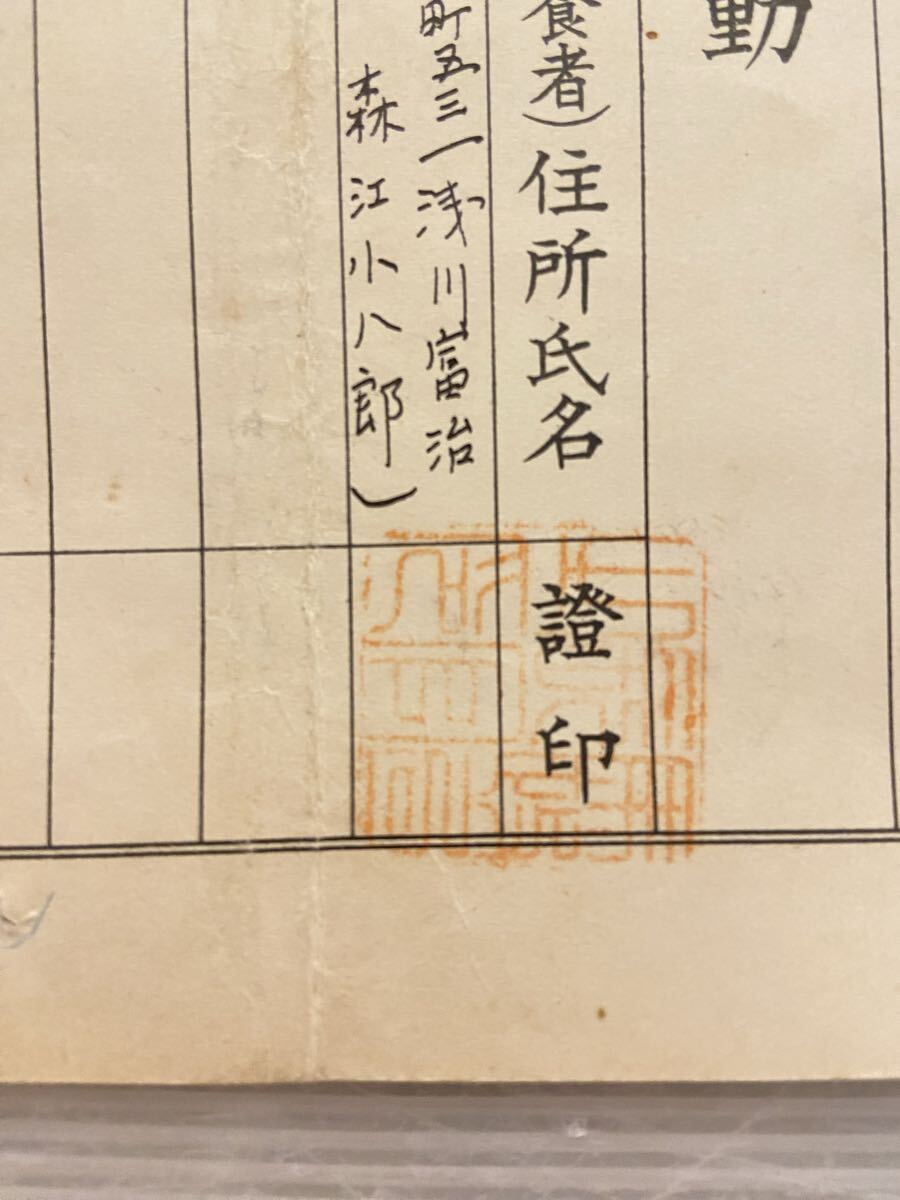 動
食者）住所氏名
證印
町五三一浅川富治
森江小八郎）